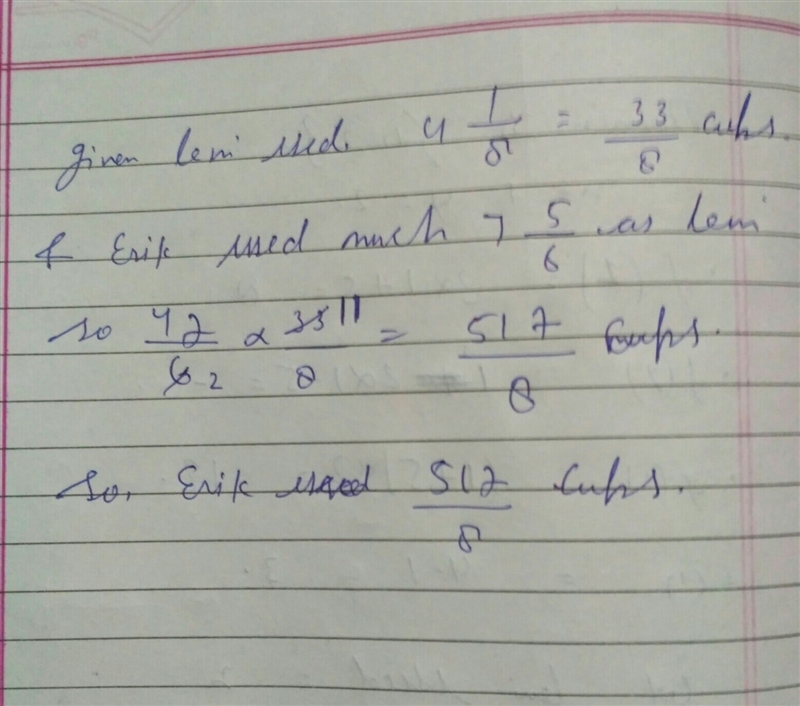 given Levi used. 4 1/8 = 33/8 cups.
& Erik used much 7 5/6 as Levi
so 47/6 2 × 33 11/8 = 517/8 cups.
So, Erik used 517/8 cups.